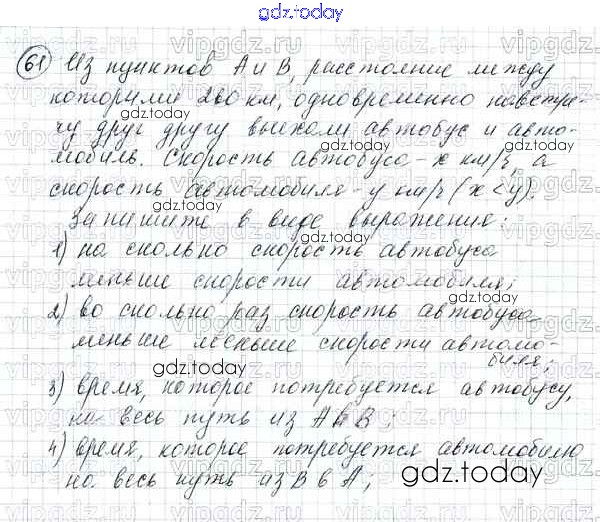 gdz.today
61 Из пунктов А и В, расстояние между
gdz.today
которыми 260 км, одновременно навстре-
чу друг другу выехали автобус и авто-
мобиль. Скорость автобуса - x км/ч, а
gdz.today
скорость автомобиля - y км/ч (x < y).
Запишите в виде выражения:
gdz.today
1) на сколько скорость автобуса
меньше скорости автомобиля;
gdz.today
2) во сколько раз скорость автобуса
меньше меньше скорости автомо-
биля;
gdz.today
3) время, которое потребуется автобусу,
на весь путь из А в В;
gdz.today
4) время, которое потребуется автомобилю
на весь путь из В в А;
gdz.today